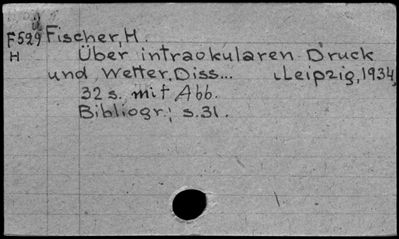 F529 Fischer, H.
H Über intraokularen Druck
und Wetter. Diss... Leipzig, 1934,
32 s. mit Abb.
Bibliogr.; s.31.